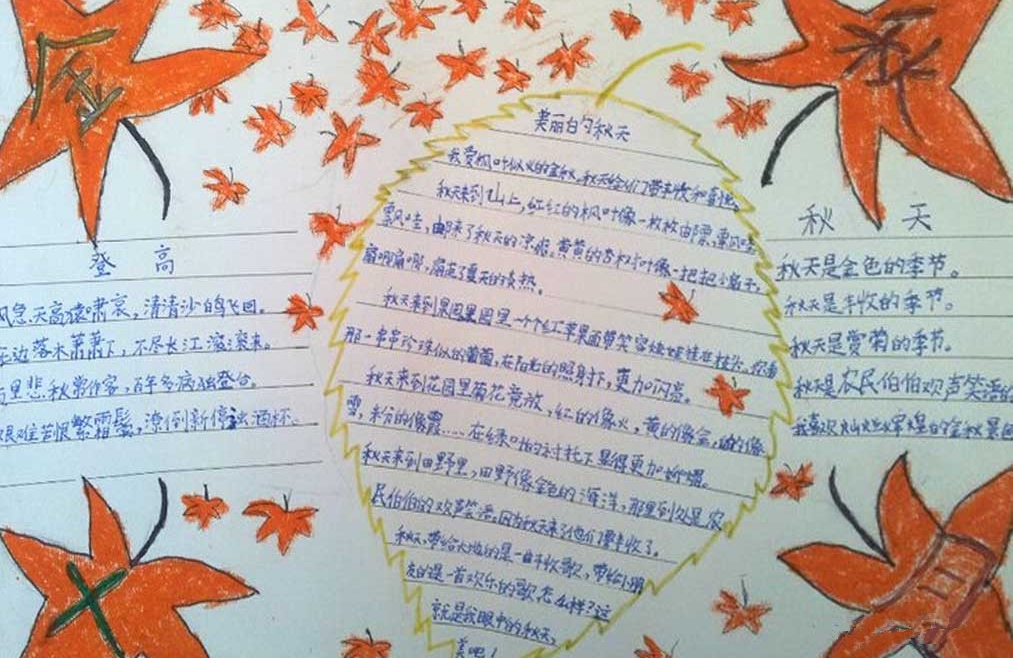 金
秋
十
月
登 高
风急天高猿啸哀，清清沙鸟飞回。
无边落木萧萧下，不尽长江滚滚来。
里悲秋常作客，百年多病独登台。
艰难苦恨繁霜鬓，潦倒新停浊酒杯。
美丽的秋天
我爱枫叶似火的金秋，秋天给们带来快和喜悦。
秋天来到山上，红红的枫叶像一枚枚邮票，飘哇
飘哇，邮来了秋天的凉爽。黄黄的杏树叶像一把把小扇子，
扇呀扇呀，扇走了夏天的炎热。
秋天来到果园里，一个个红苹果面带笑容挂在枝头，
那一串串珍珠似的葡萄，在阳光的照射下，更加闪亮。
秋天来到花园里菊花竞放，红的像火，黄的像金，的像
雪，粉的像霞……在绿叶的衬托下显得更加娇媚。
秋天来到田野里，田野像金色的海洋，那里到处是农
民伯伯的欢声笑语。因为秋天来了他们丰收了。
秋天，带给大地的是一曲丰收歌，带给小朋
友的是一首欢乐的歌怎么样？这
就是我眼中的秋天，
美吧！
秋 天
秋天是金色的季节。
秋天是丰收的季节。
秋天是赏菊的季节。
秋天是农民伯伯欢声笑语的
我喜欢